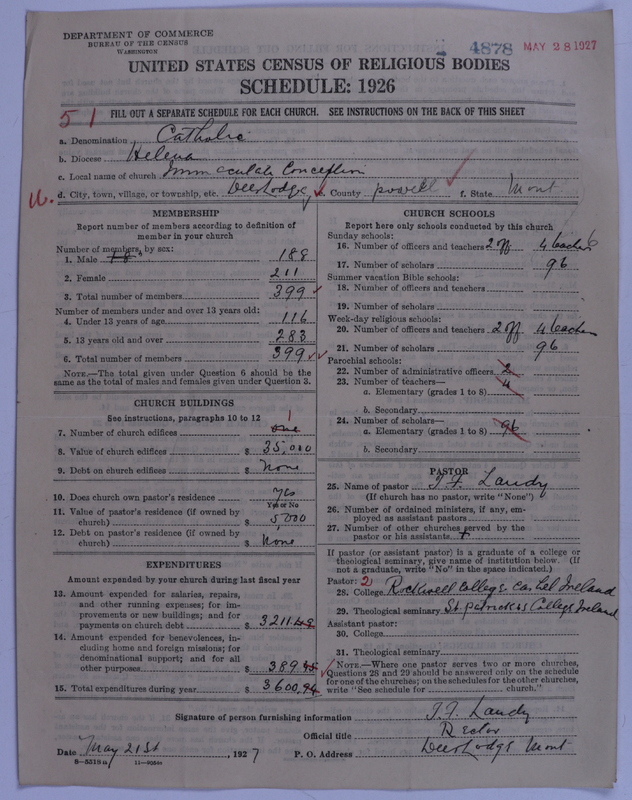 DEPARTMENT OF COMMERCE
BUREAU OF THE CENSUS
WASHINGTON
4878 MAY 28 1927
UNITED STATES CENSUS OF RELIGIOUS BODIES
SCHEDULE: 1926
51
FILL OUT A SEPARATE SCHEDULE FOR EACH CHURCH. SEE INSTRUCTIONS ON THE BACK OF THIS SHEET
a. Denomination Catholic
b. Diocese Helena
c. Local name of church Immaculate Conception
16. d. City, town, village, or township, etc. Deer Lodge e. County powell f. State Mont
MEMBERSHIP
Report number of members according to definition of
member in your church
Number of members, by sex:
1. Male 188
2. Female 211
3. Total number of members 399
Number of members under and over 13 years old:
4. Under 13 years of age 116
5. 13 years old and over 283
6. Total number of members 399
NOTE.—The total given under Question 6 should be the
same as the total of males and females given under Question 3.
CHURCH BUILDINGS
See instructions, paragraphs 10 to 12
1
7. Number of church edifices one
8. Value of church edifices $ 35,000
9. Debt on church edifices $ None
10. Does church own pastor's residence yes
Yes or No
11. Value of pastor's residence (if owned by
church) $ 5,000
12. Debt on pastor's residence (if owned by
church) $ None
EXPENDITURES
Amount expended by your church during last fiscal year
13. Amount expended for salaries, repairs,
and other running expenses; for im-
provements or new buildings; and for
payments on church debt $ 3211.49
14. Amount expended for benevolences, in-
cluding home and foreign missions; for
denominational support; and for all
other purposes $ 389.45
15. Total expenditures during year $ 3600.94
CHURCH SCHOOLS
Report here only schools conducted by this church
Sunday schools:
16. Number of officers and teachers 2 off 4 teachers
17. Number of scholars 96
Summer vacation Bible schools:
18. Number of officers and teachers
19. Number of scholars
Week-day religious schools:
20. Number of officers and teachers 2 off 4 teachers
21. Number of scholars 96
Parochial schools:
22. Number of administrative officers 2
23. Number of teachers—
a. Elementary (grades 1 to 8) 4
b. Secondary
24. Number of scholars—
a. Elementary (grades 1 to 8) 96
b. Secondary
PASTOR
25. Name of pastor T. F. Landy
(If church has no pastor, write "None")
26. Number of ordained ministers, if any, em-
ployed as assistant pastors
27. Number of other churches served by the
pastor or his assistants
If pastor (or assistant pastor) is a graduate of a college or
theological seminary, give name of institution below. (If
not a graduate, write "No" in the space indicated.)
Pastor: 2
28. College Rockwell College Cashel Ireland
29. Theological seminary St Patricks College Ireland
Assistant pastor:
30. College
31. Theological seminary
NOTE.—Where one pastor serves two or more churches,
Questions 28 and 29 should be answered only on the schedule
for one of the churches; on the schedules for the other churches,
write "See schedule for church."
Signature of person furnishing information T. F. Landy
Official title Rector
Date May 21st, 1927 P. O. Address Deer Lodge Mont
8-5518a 11-90564